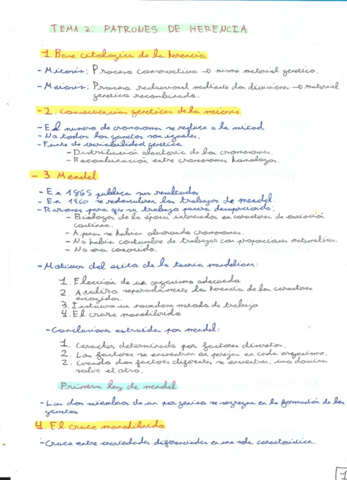 TEMA 2: PATRONES DE HERENCIA
1 Base citologica de la herencia
- Mitosis: Proceso conservativo → mismo material genetico.
- Meiosis: Proceso reduccional mediante dos divisiones → material
genetico recombinado.
- 2. Consecuencias geneticas de la meiosis
- El numero de cromosomas se reduce a la mitad
- No todos los gametos son iguales
- Fuente de variabilidad genetica
- Distribución aleatoria de los cromosomas.
- Recombinación entre cromosomas homologos.
- 3 Mendel
- En 1865 publica sus resultados
- En 1900 se redescubren los trabajos de mendel
- Razones para que su trabajo pasara desapercibido:
- Biologos de la época interesados en caracteres de variación
continua.
- Apenas se habian observado cromosomas.
- No habia costumbre de trabajar con proporciones matematicas.
- No era conocido.
- Motivos del exito de la teoria mendeliana:
1. Elección de un organismo adecuado
2. Analiza separadamente la herencia de los caracteres
escogidos.
3. Instauro un novedoso metodo de trabajo
4. El cruce monohibrido
- Conclusiones extraidas por mendel:
1. Caracter determinado por factores discretos.
2. Los factores se encuentran en parejas en cada organismo.
3. Cuando dos factores diferentes se encuentran, uno domina
sobre el otro.
Primera ley de mendel
- Los dos miembros de un par genico se segregan en la formación de los
gametos
4. El cruce monohibrido
- Cruce entre variedades diferenciadas en una sola caracteristica.
1